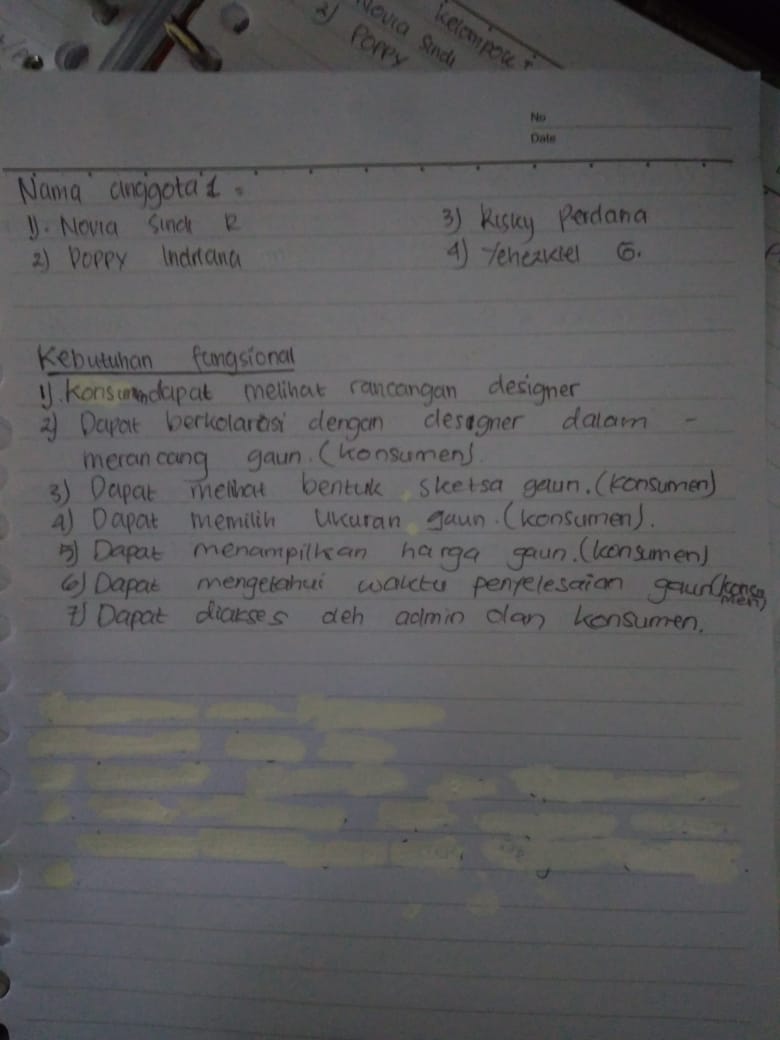 Kelompok :
Novia Sindi
2) POPPY
No
Date
Nama anggota'1 :
1). Novia Sindi R
3) Risky Perdana
2) POPPY Indriana
4) Yehezkiel G.
Kebutuhan fungsional
1). Konsumen dapat melihat rancangan designer
2) Dapat berkolarasi dengan designer dalam -
merancang gaun. (konsumen).
3) Dapat melihat bentuk sketsa gaun. (konsumen)
4) Dapat memilih ukuran gaun. (konsumen).
5) Dapat menampilkan harga gaun. (konsumen)
6) Dapat mengetahui waktu penyelesaian gaun (konsumen)
7) Dapat diakses oleh admin dan konsumen.